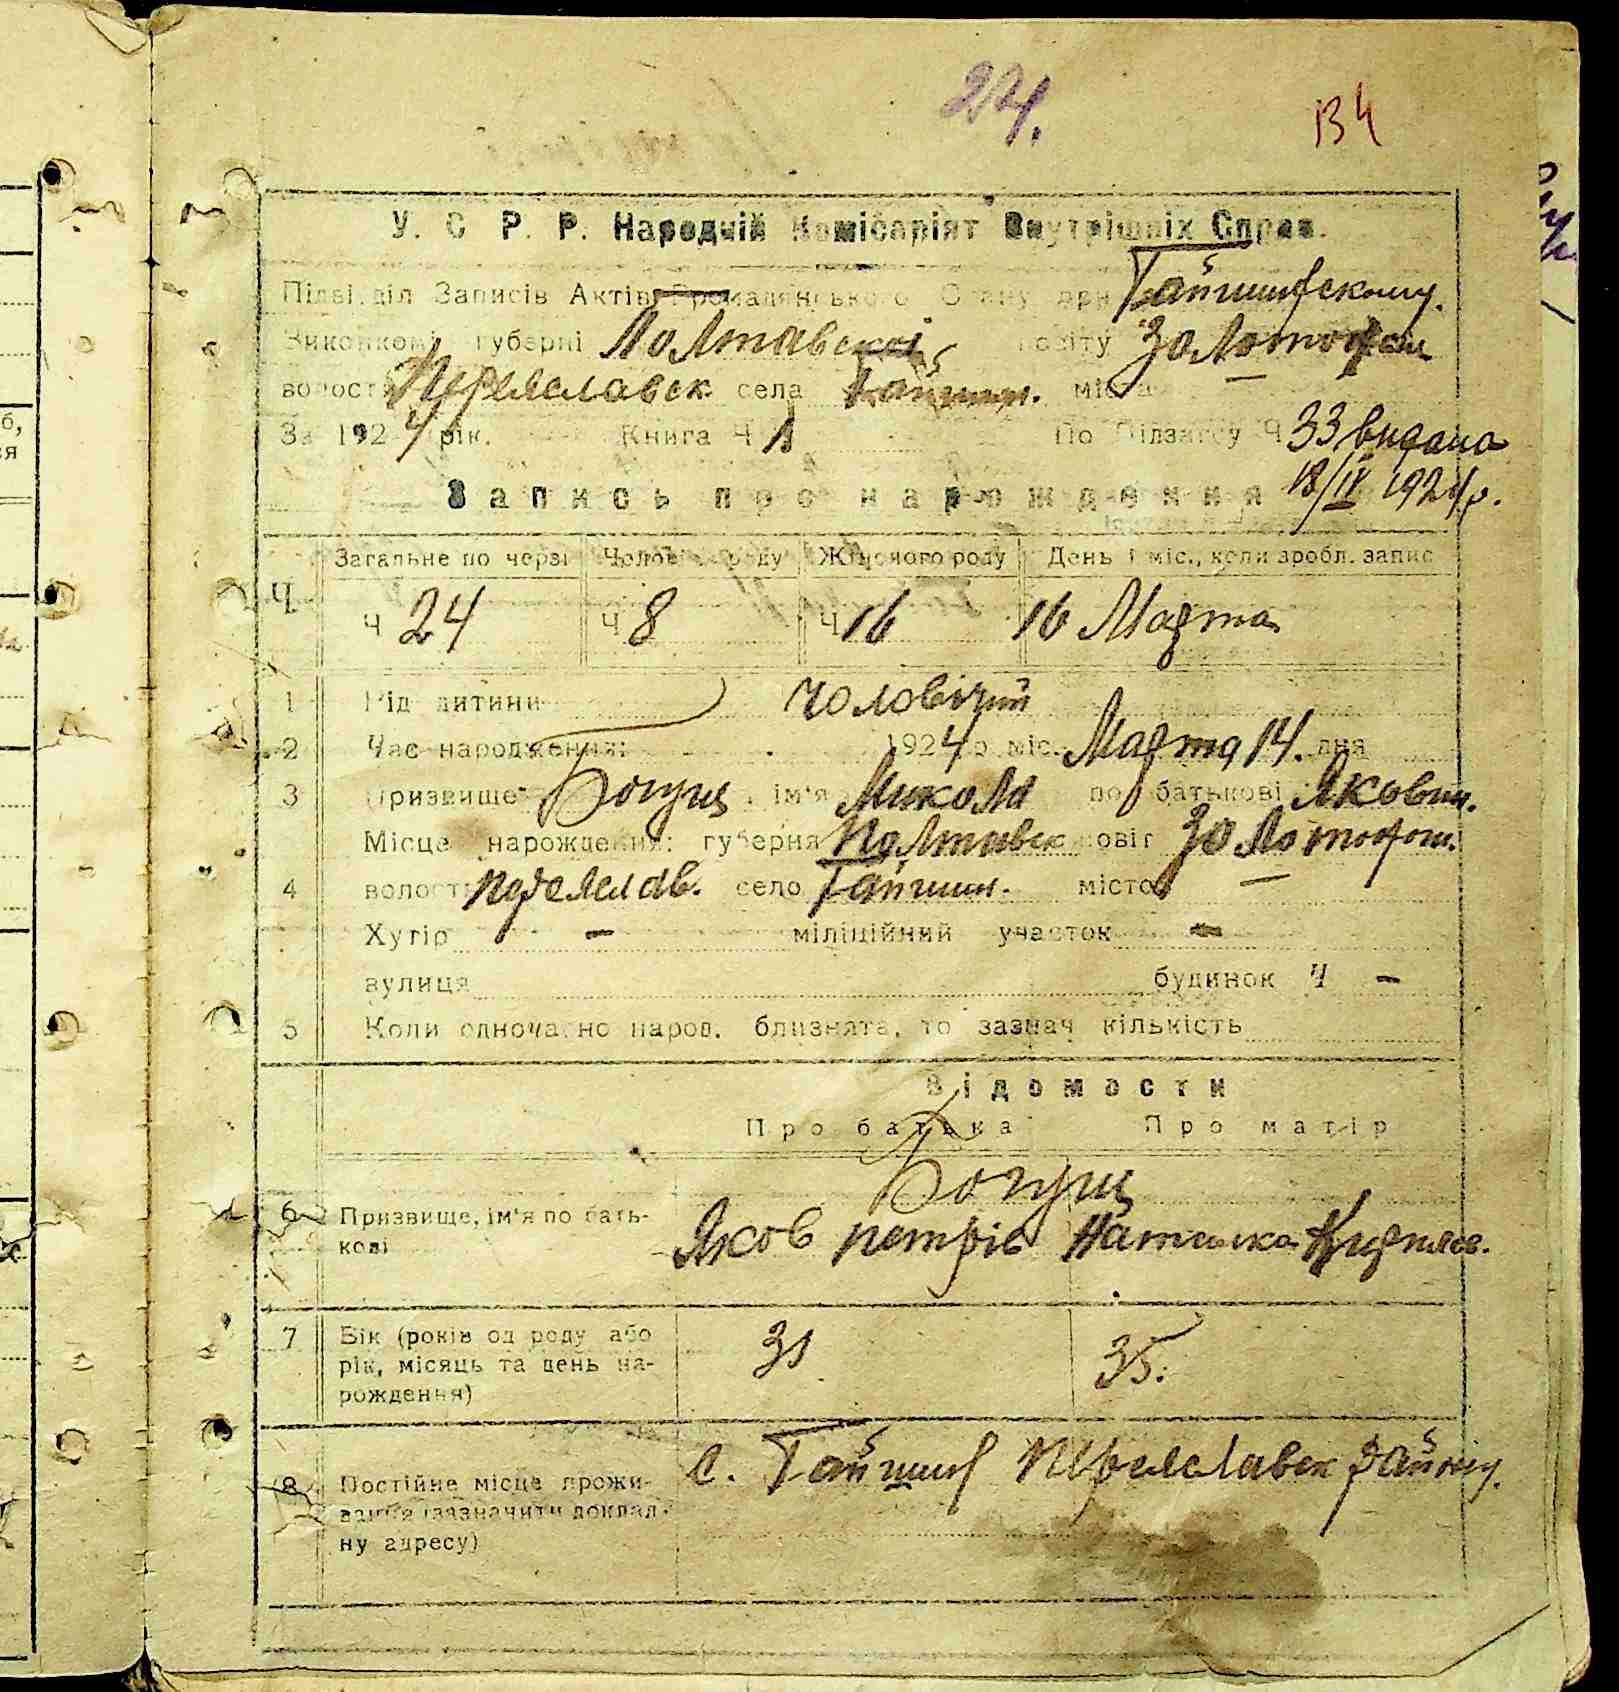 24.
134
У. С. Р. Р. Народній Комісаріят Внутрішніх Справ.
Підвідділ Записів Актів Громадянського Стану при Гайшинському.
Виконкомі губерні Полтавскої повіту Золотонош
волости Переяславск села Гайшин. міста —
За 1924 рік. Книга Ч 1 По Підзагсу Ч 33 видана
Запись про нарождення 18/IV 1924 р.
Загальне по черзі Чолов. роду Жіночого роду День і міс., коли зробл. запис
Ч Ч 24 Ч 8 Ч 16 16 Марта
1 Рід дитини чоловічий
2 Час народження: 1924 р. міс. Марта 14. дня
3 Призвище Богуш, ім'я Микола по батькові Яковин.
Місце нарождення: губерня Полтавск повіт Золотонош.
4 волость Переяслав. село Гайшин. місто —
Хутір — міліційний участок —
вулиця будинок Ч —
5 Коли одночасно народ. близнята, то зазнач кількість
Відомости
Про батька Про матір
Богущ
6 Призвище, ім'я по бать-
кові
Яков петрів Наталка
7 Вік (років од роду або
рік, місяць та день на-
рождення)
31 35.
8 Постійне місце прожи-
вання (зазначити доклад-
ну адресу)
с. Гайшин Переяславск району.